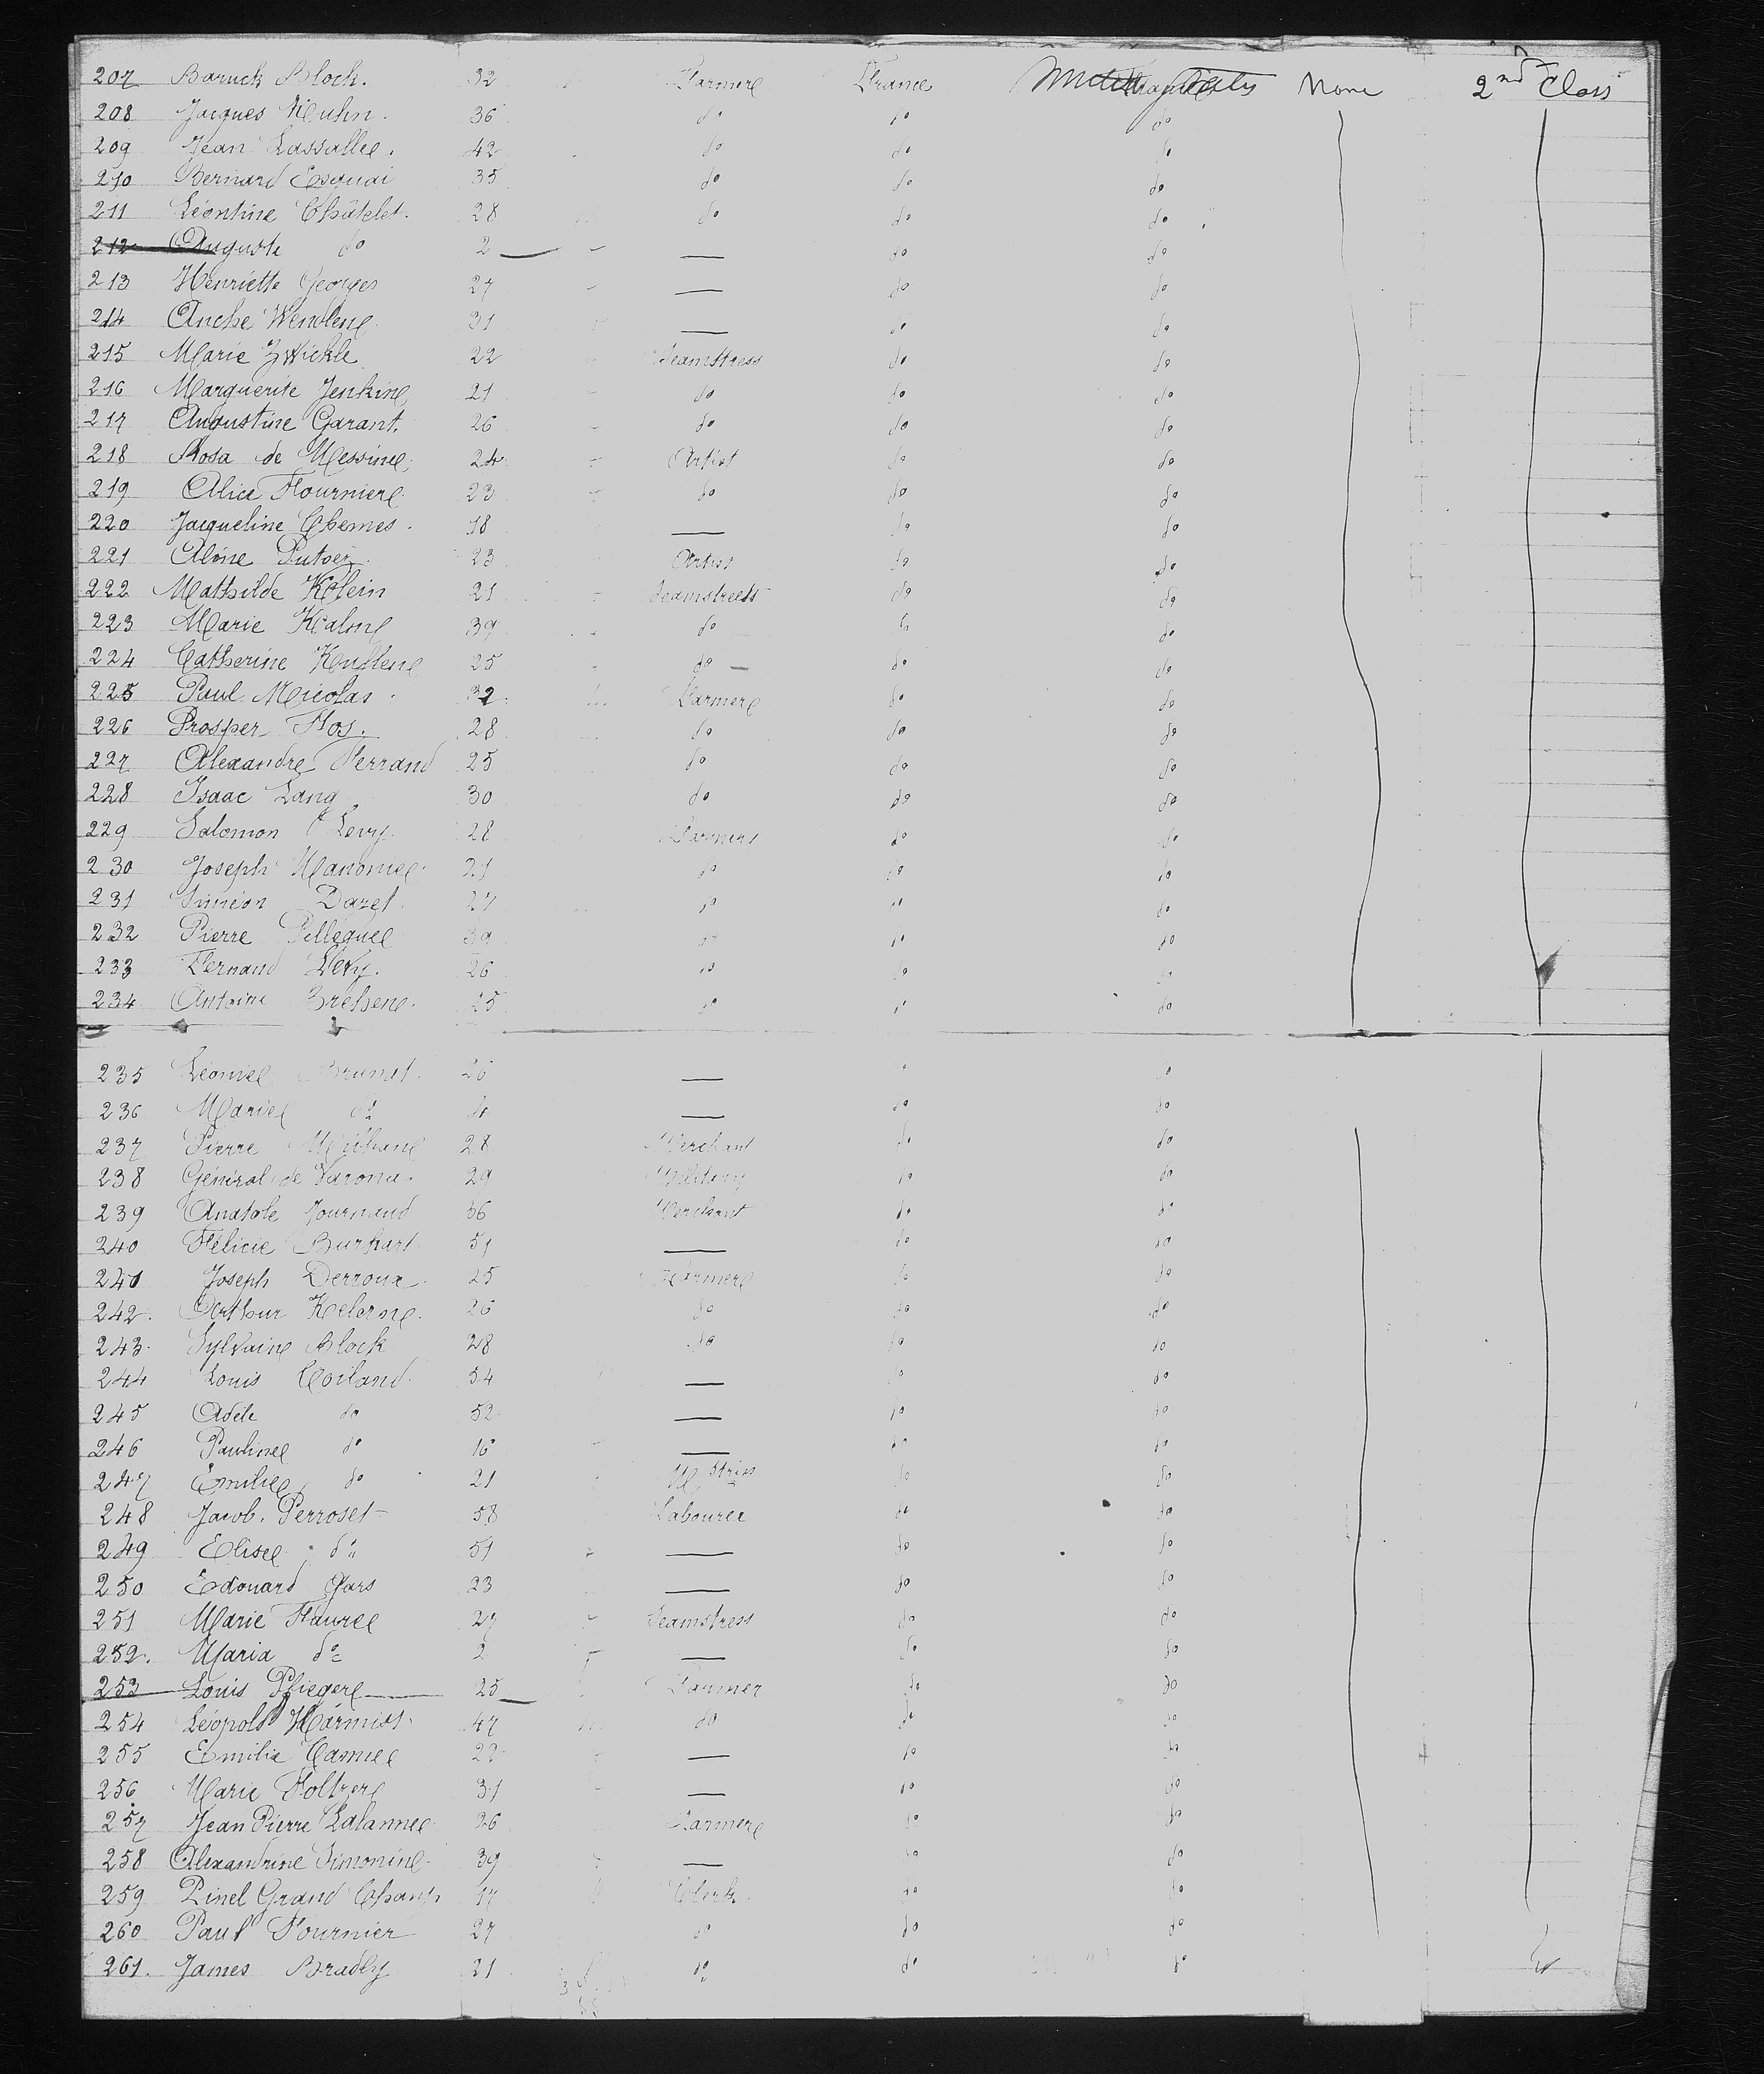 207 Baruck Block. 32 Farmer France United States None 2nd Class
208 Jacques Kuhn. 36 do do do
209 Jean Lassalle. 42 do do do
210 Bernard 35 do do do
211 Léontine Châtelet. 28 do do do
212 Auguste do 2 — do do
213 Henriette Georges 27 — do do
214 31 — do do
215 Marie Zwickle 22 Seamstress do do
216 Marguerite Jenkine 21 do do do
217 Augustine Garant. 26 do do do
218 Rosa de Messine 24 Artist do do
219 Alice Fournier 23 do do do
220 Jacqueline Chemes. 18 — do do
221 Aline 23 Artist do do
222 Mathilde Klein 21 Seamstress do do
223 Marie 39 do do do
224 Catherine 25 do do do
225 Paul Nicolas. 32 Farmer do do
226 Prosper Hos. 28 do do do
227 Alexandre Ferrand 25 do do do
228 Isaac Lang 30 do do do
229 Salomon Levy. 28 Farmers do do
230 Joseph 21 do do do
231 Siméon Dazet. 27 do do do
232 Pierre Pellegue 39 do do do
233 Fernand Levy. 26 do do do
234 Antoine 25 do do do
235 Leonie Brunet. 26 — do do
236 Marie do 4 — do do
237 Pierre 28 Merchant do do
238 Général de Varona. 29 Military do do
239 Anatole Journaud 36 Merchant do do
240 Félicie Burkart. 51 — do do
241 Joseph Derroux. 25 Farmer do do
242. Arthur 26 do do do
243. Sylvain Block 28 do do do
244 Louis Coiland. 54 — do do
245 Adèle do 52 — do do
246 Pauline do 16 — do do
247 Emilie do 21 do do
248 Jacob. Perroset 58 Labourer do do
249 Elise do 51 — do do
250 Edouard Gars 23 — do do
251 Marie Faure 27 Seamstress do do
252. Maria do 2 — do do
253 Louis Pfieger 25 Farmer do do
254 Léopold 47 do do do
255 Emilie Camie 22 — do do
256 Marie Holtzer 31 — do do
257 Jean Pierre Lalanne 26 Farmer do do
258 Alexandrine Simonin 39 — do do
259 Pinel Grand Champ 17 Clerk. do do
260 Paul Fournier 27 do do do
261. James Bradly 21 do do do